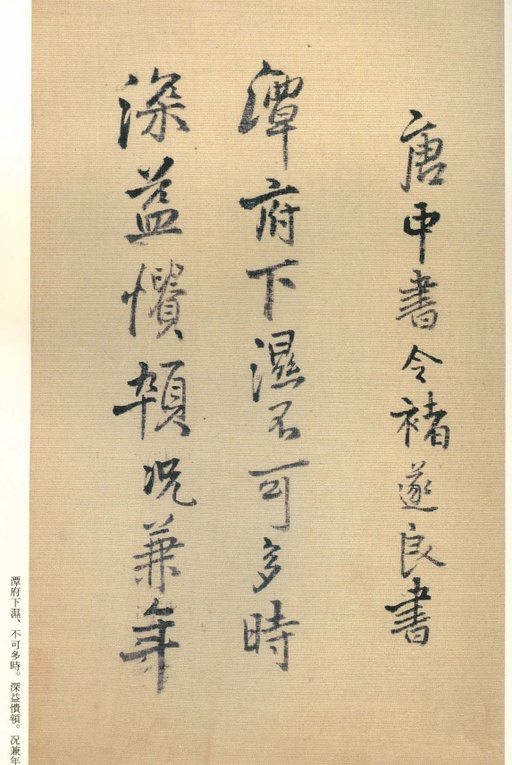 唐中書令褚遂良書
潭府下濕不可多時
深益憒頓況兼年
潭府下濕、不可多時。深益憒頓。況兼年